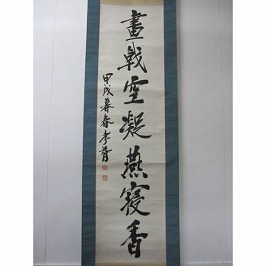 畫戟空凝燕寝香
甲戌暮春孝胥